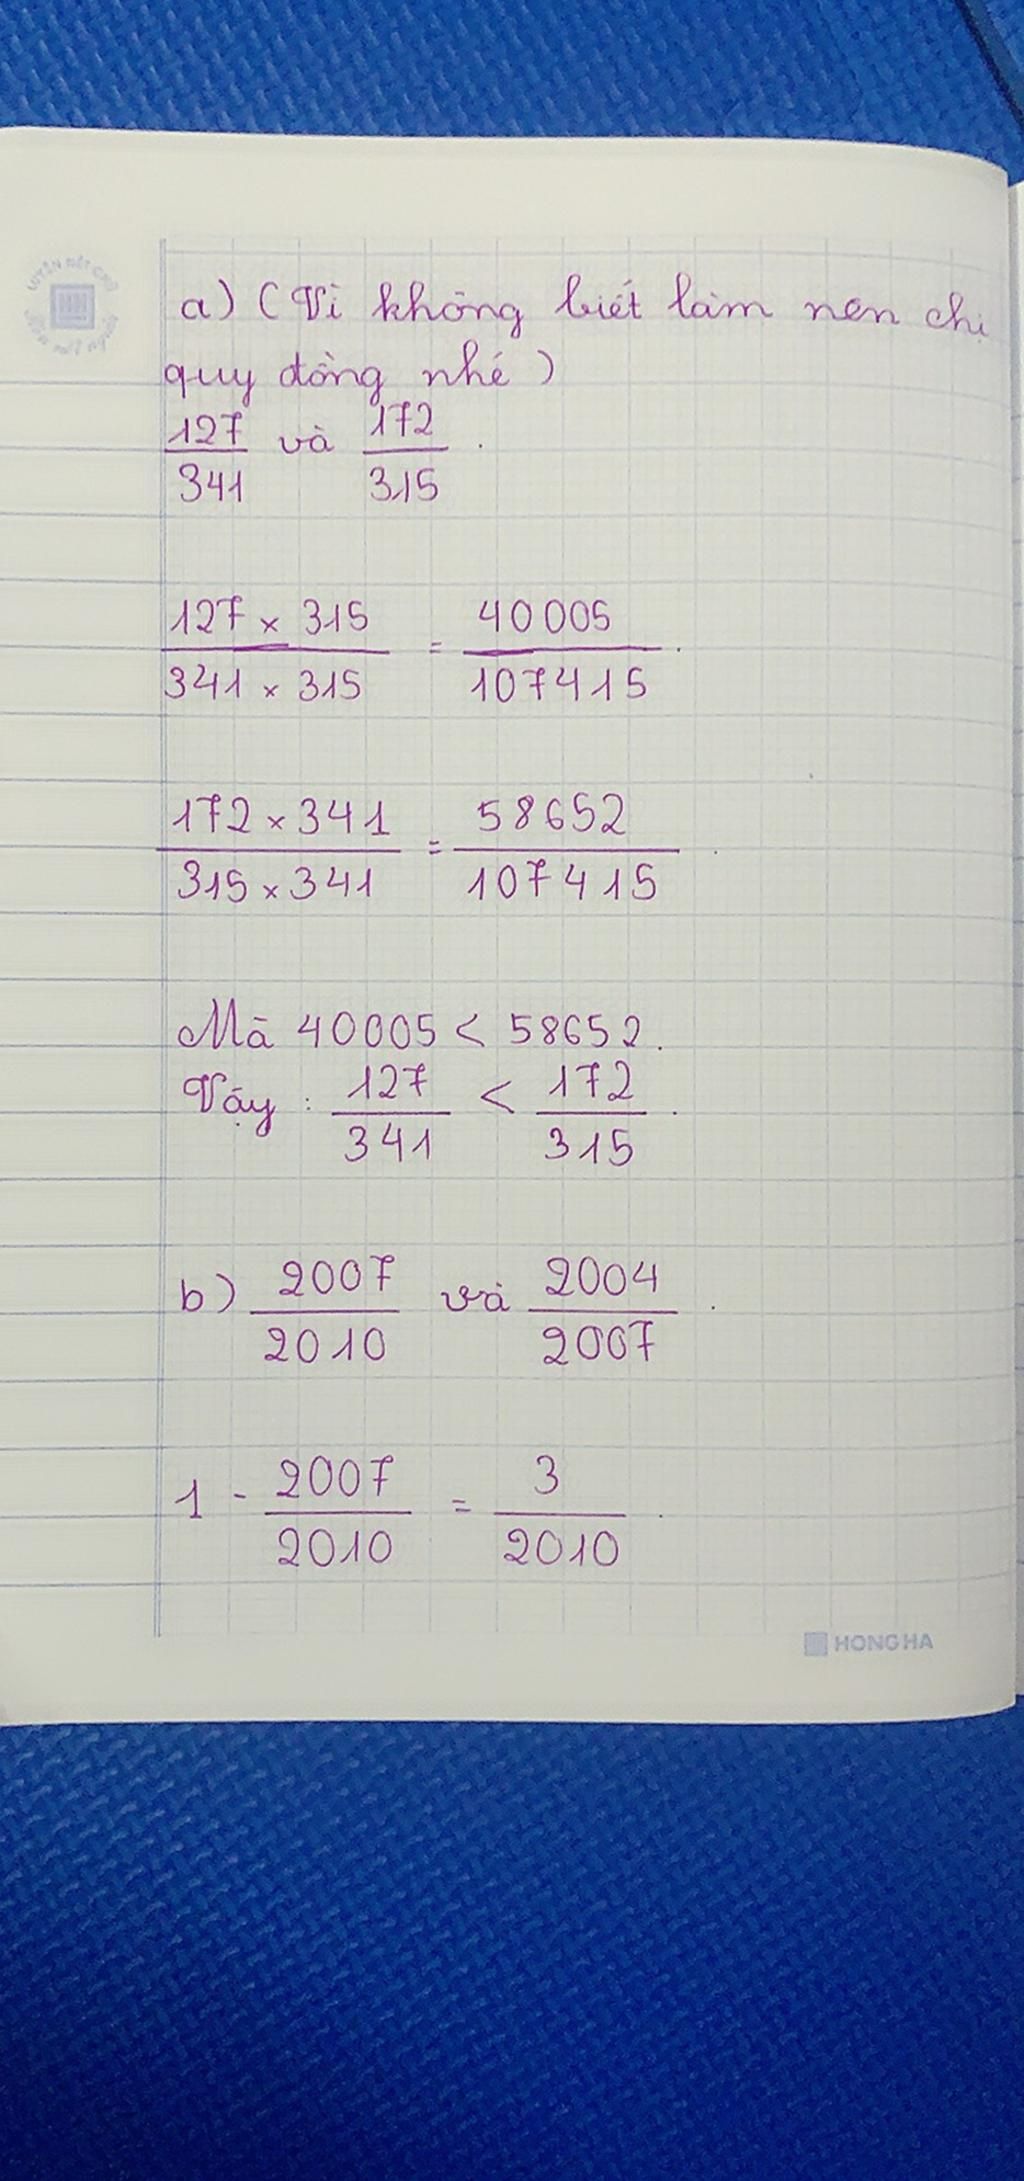 a) (Vì không biết làm nên chị
quy đồng nhé)
127/341 và 172/315.
127 × 315 / 341 × 315 = 40005 / 107415.
172 × 341 / 315 × 341 = 58652 / 107415.
Mà 40005 < 58652.
Vậy: 127/341 < 172/315.
b) 2007/2010 và 2004/2007.
1 - 2007/2010 = 3/2010.
HONG HA